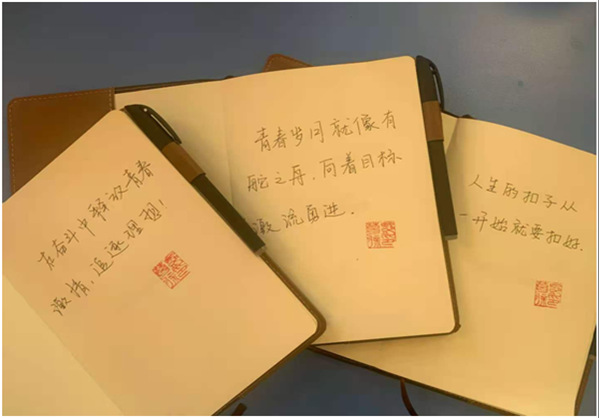 在奋斗中释放青春
激情,追逐理想!
青春岁月就像有
舵之舟,向着目标
激流勇进.
人生的扣子从
一开始就要扣好.